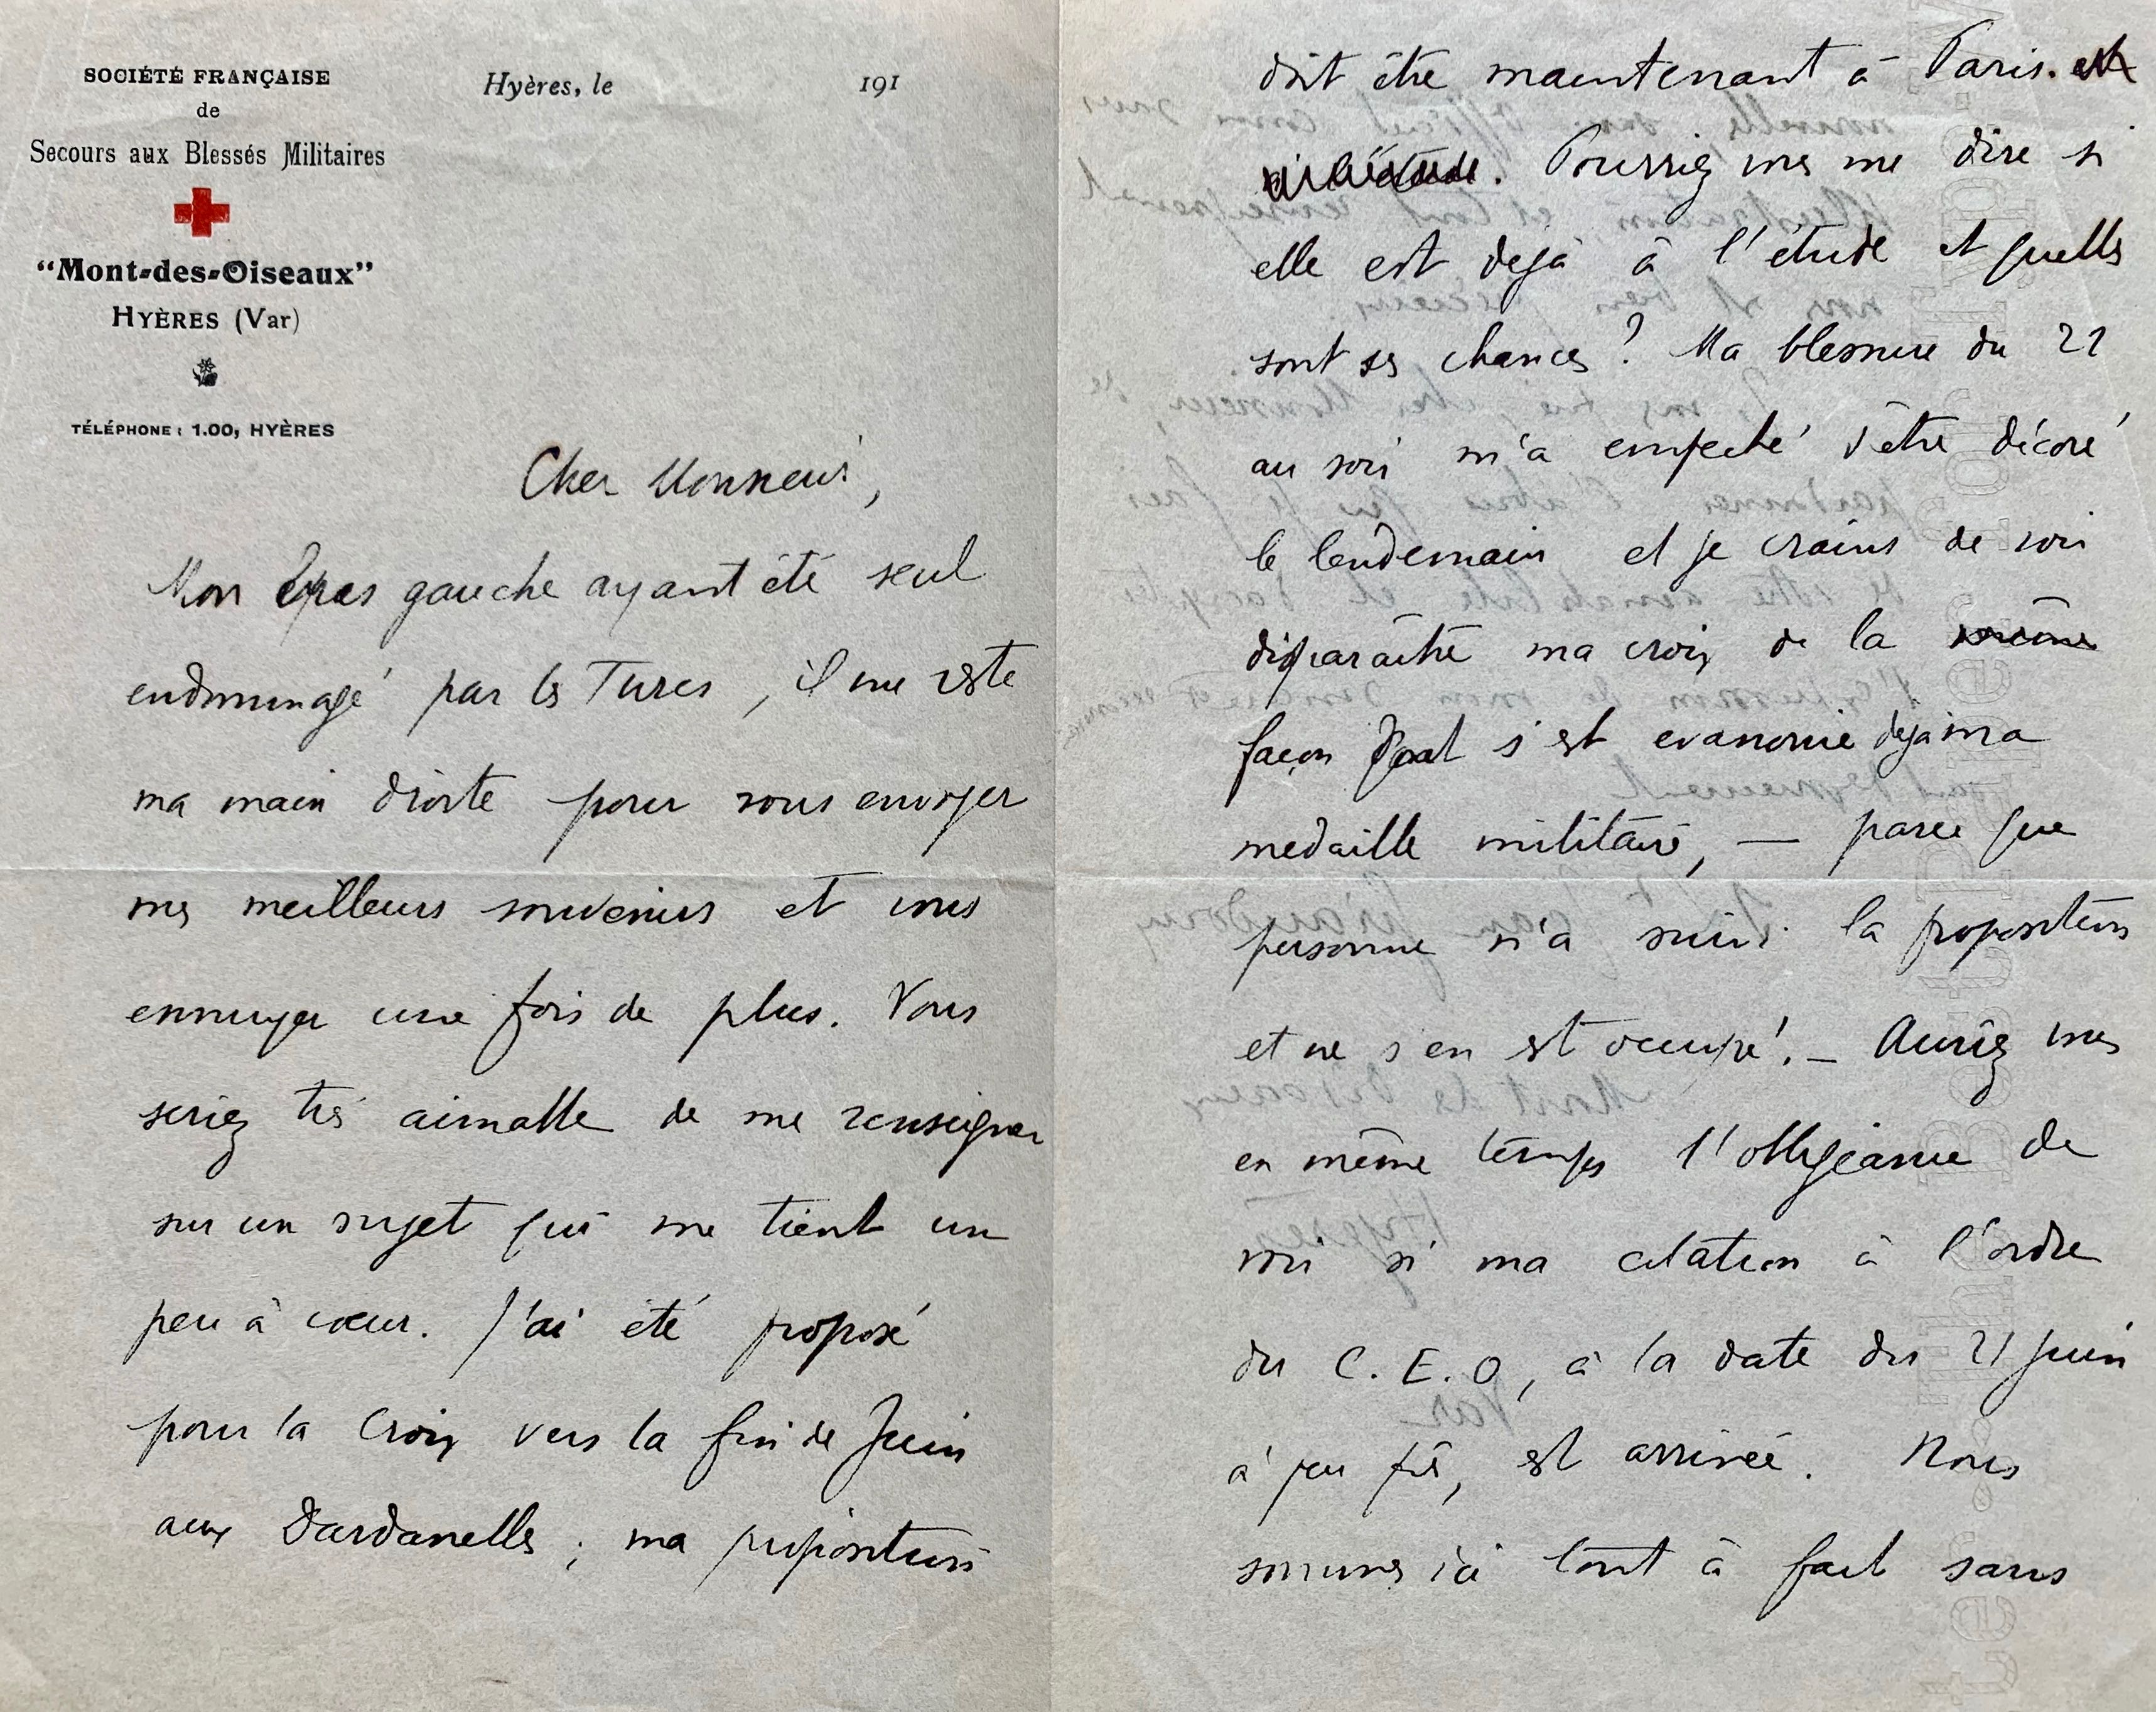 SOCIÉTÉ FRANÇAISE
de
Secours aux Blessés Militaires
"Mont-des-Oiseaux"
HYÈRES (Var)
TÉLÉPHONE : 1.00, HYÈRES
Hyères, le 191
Cher Monsieur,
Mon bras gauche ayant été seul
endommagé par les Turcs, il me reste
ma main droite pour vous envoyer
mes meilleurs souvenirs et vous
ennuyer une fois de plus. Vous
seriez très aimable de me renseigner
sur un sujet qui me tient un
peu à cœur. J'ai été proposé
pour la Croix vers la fin de Juin
aux Dardanelles ; ma proposition
doit être maintenant à Paris. et
Pourriez vous me dire si
elle est dejà à l'étude et quelles
sont ses chances ? Ma blessure du 21
au soir m'a empeché d'être décoré
le lendemain et je crains de voir
disparaître ma croix de la même
façon dont s'est evanouie deja ma
medaille militaire, — parce que
personne n'a suivi la proposition
et ne s'en est occupé. — Auriez vous
en même temps l'obligeance de
voir si ma citation à l'ordre
du C. E. O, à la date du 21 juin
à peu près, est arrivée. Nous
sommes ici tout à fait sans